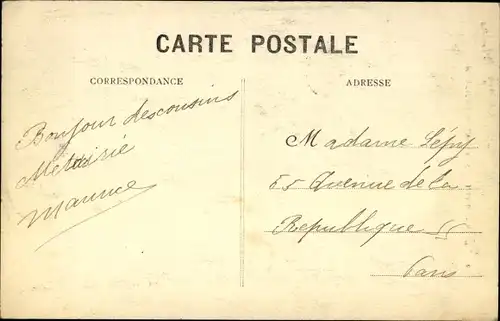 CARTE POSTALE
CORRESPONDANCE
Bonjour des cousins
Maurice
ADRESSE
Madame Lépy
55 Avenue de la
République 55
Paris